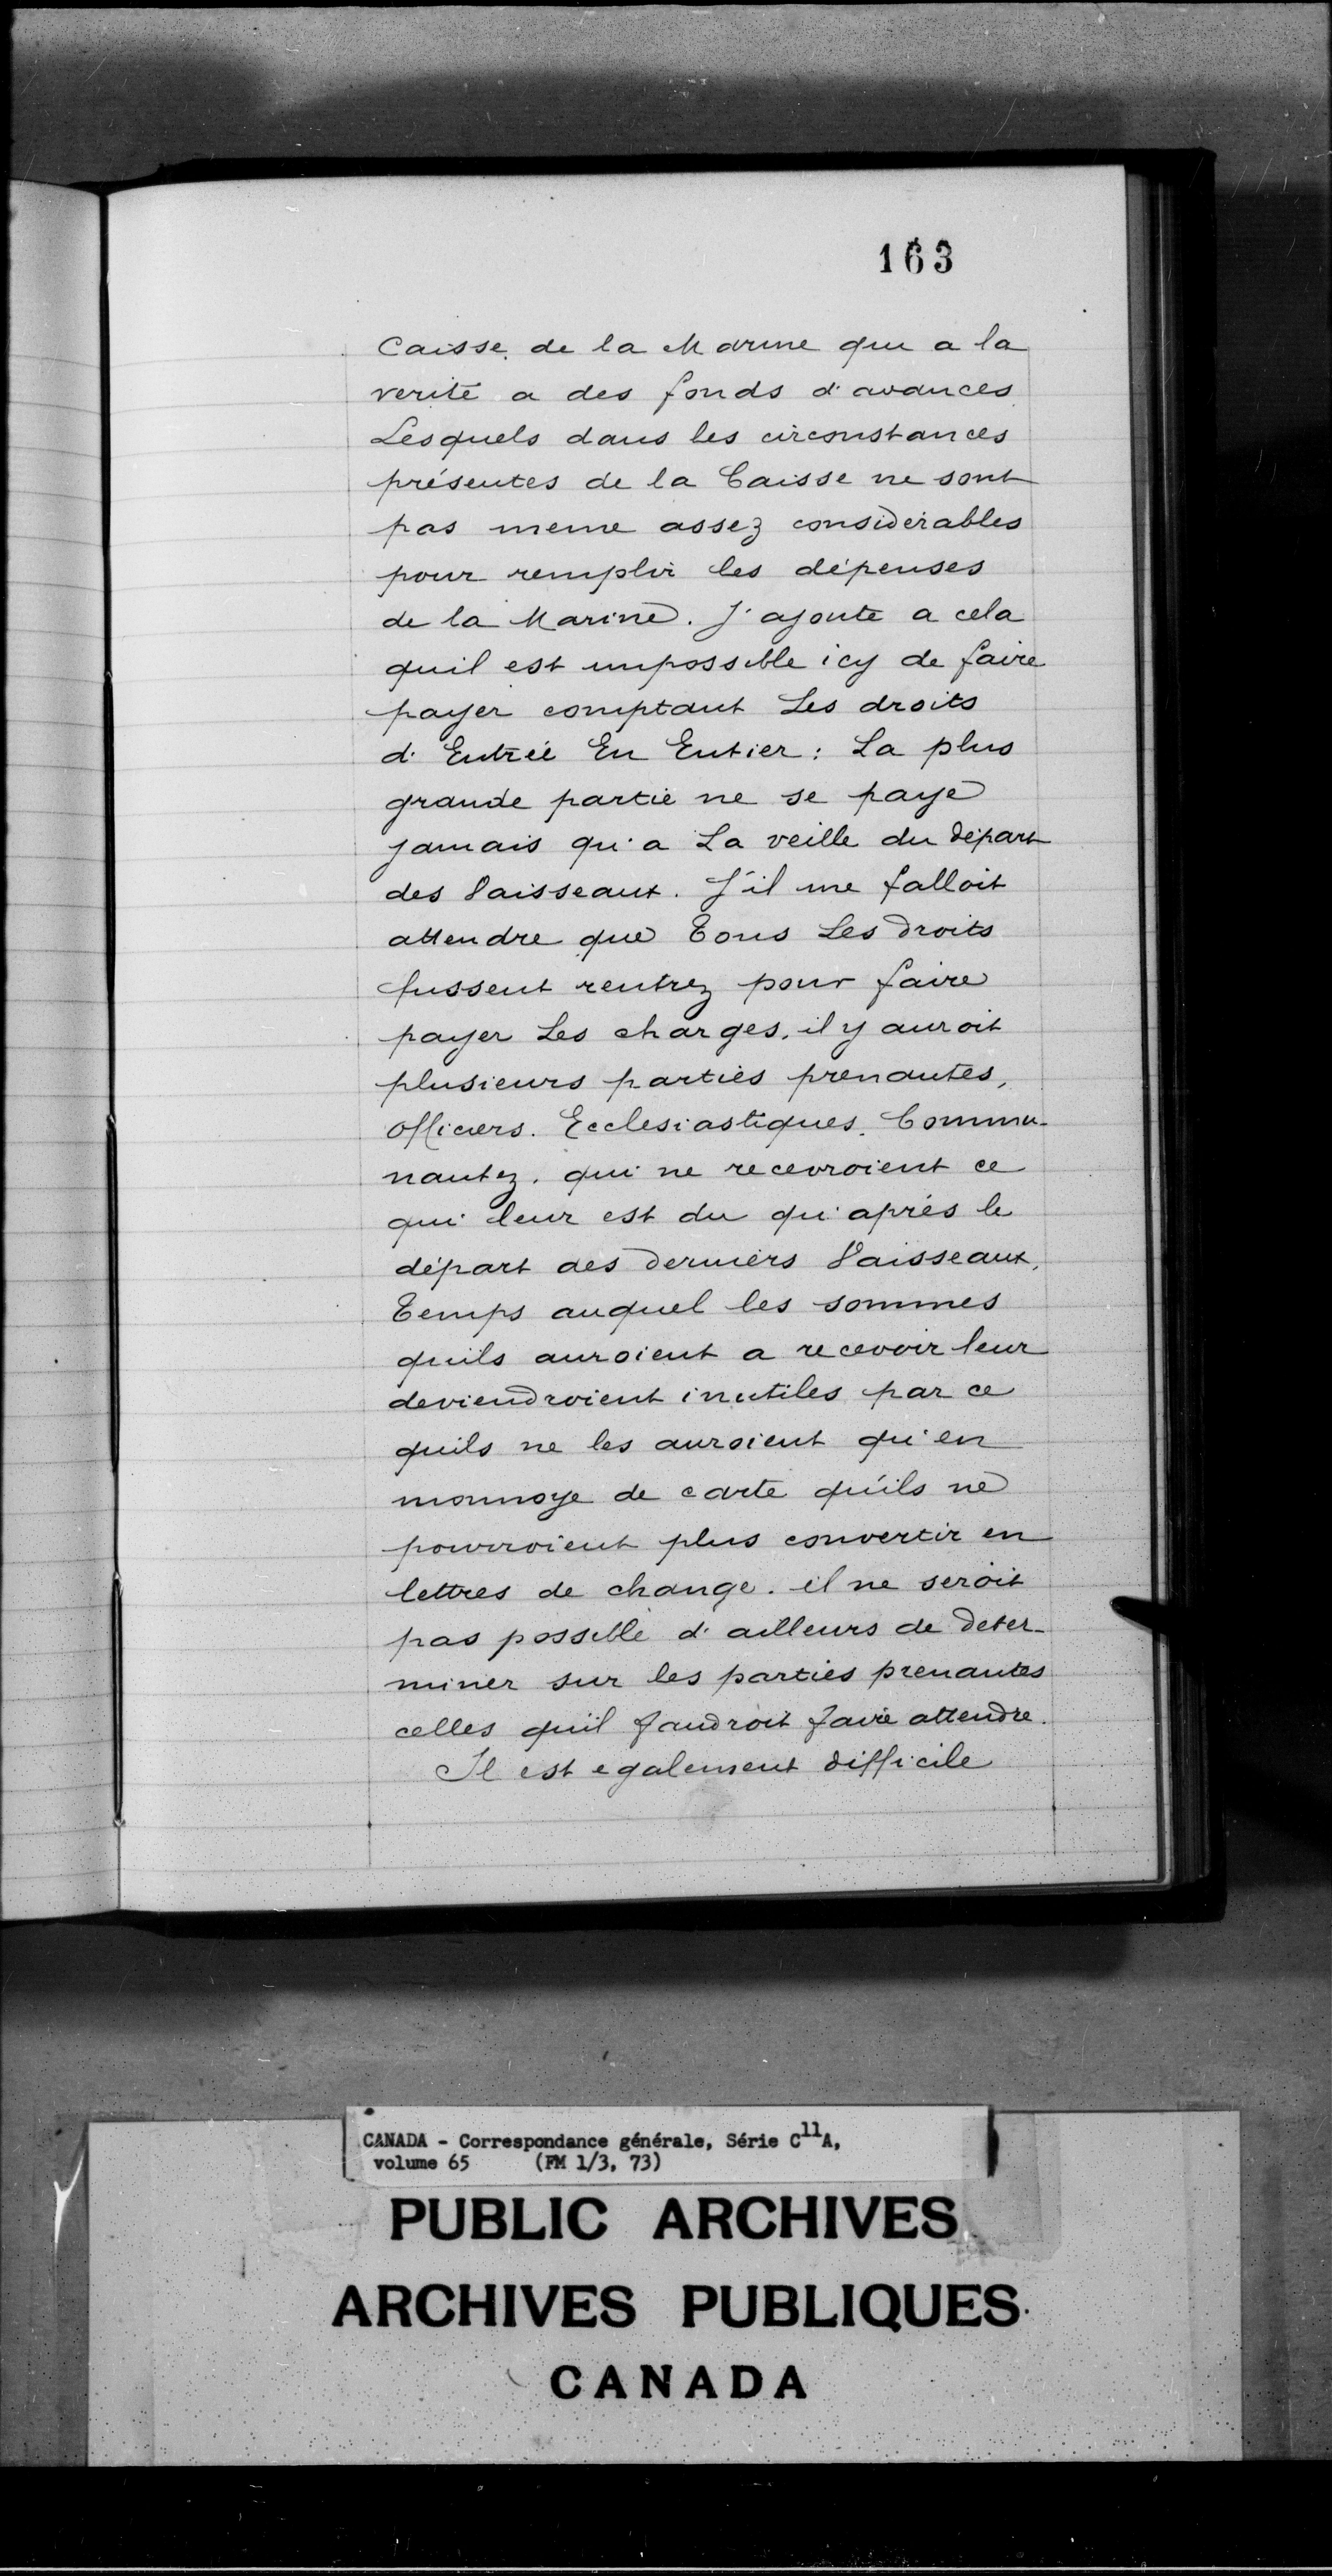 163
Caisse, de la Marine qui a la
verité a des fonds d'avances
Lesquels dans les circonstances
présentes de la Caisse ne sont
pas meme assez considérables
pour remplir les dépenses
de la Marine. J'ajoute a cela
quil est impossible icy de faire
payer comptant Les droits
d'Entrée En Entier : La plus
grande partie ne se paye
jamais qu'a La veille du départ
des Vaisseaux. S'il me falloit
attendre que Tous Les droits
fussent rentrez pour faire
payer Les charges, il y auroit
plusieurs parties prenantes,
officiers. Ecclesiastiques. Commu-
nautez. qui ne recevroient ce
qui leur est du qu'après le
départ des derniers Vaisseaux,
Temps auquel les sommes
quils auroient a recevoir leur
deviendroient inutiles par ce
quils ne les auroient qu'en
monnoye de carte qu'ils ne
pourroient plus convertir en
lettres de change. il ne seroit
pas possible d'ailleurs de deter-
miner sur les parties prenantes
celles qu'il faudroit faire attendre.
Il est egalement difficile
CANADA - Correspondance générale, Série C11A,
volume 65 (FM 1/3, 73)
PUBLIC ARCHIVES
ARCHIVES PUBLIQUES
CANADA